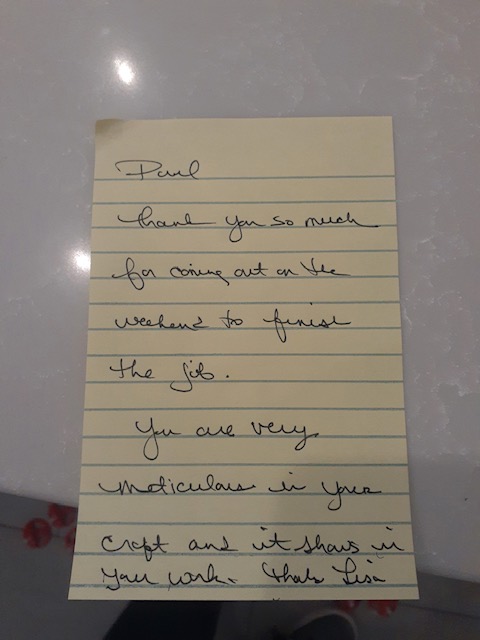 Paul
thank you so much
for coming out on the
weekend to finish
the job.
You are very
meticulous in your
craft and it shows in
your work. thanks Lisa